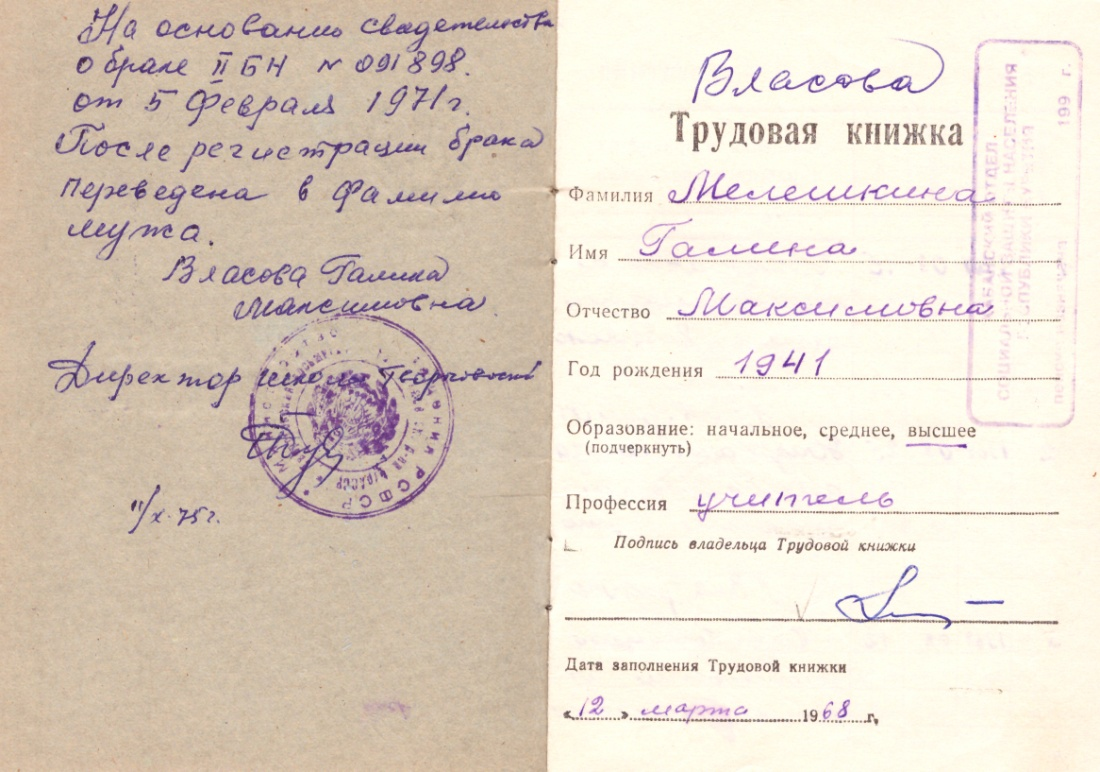 На основании свидетельства
о браке II БН № 091898.
от 5 Февраля 1971 г.
После регистрации брака
переведена в фамилию
мужа.
Власова Галина
Максимовна
Директор школы
11/X-75 г.
Власова
Трудовая книжка
Фамилия Мелешкина
Имя Галина
Отчество Максимовна
Год рождения 1941
Образование: начальное, среднее, высшее
(подчеркнуть)
Профессия учитель
Подпись владельца Трудовой книжки
Дата заполнения Трудовой книжки
«12» марта 1968 г.
ОТДЕЛ
НАСЕЛЕНИЯ
199 г.
РСФСР